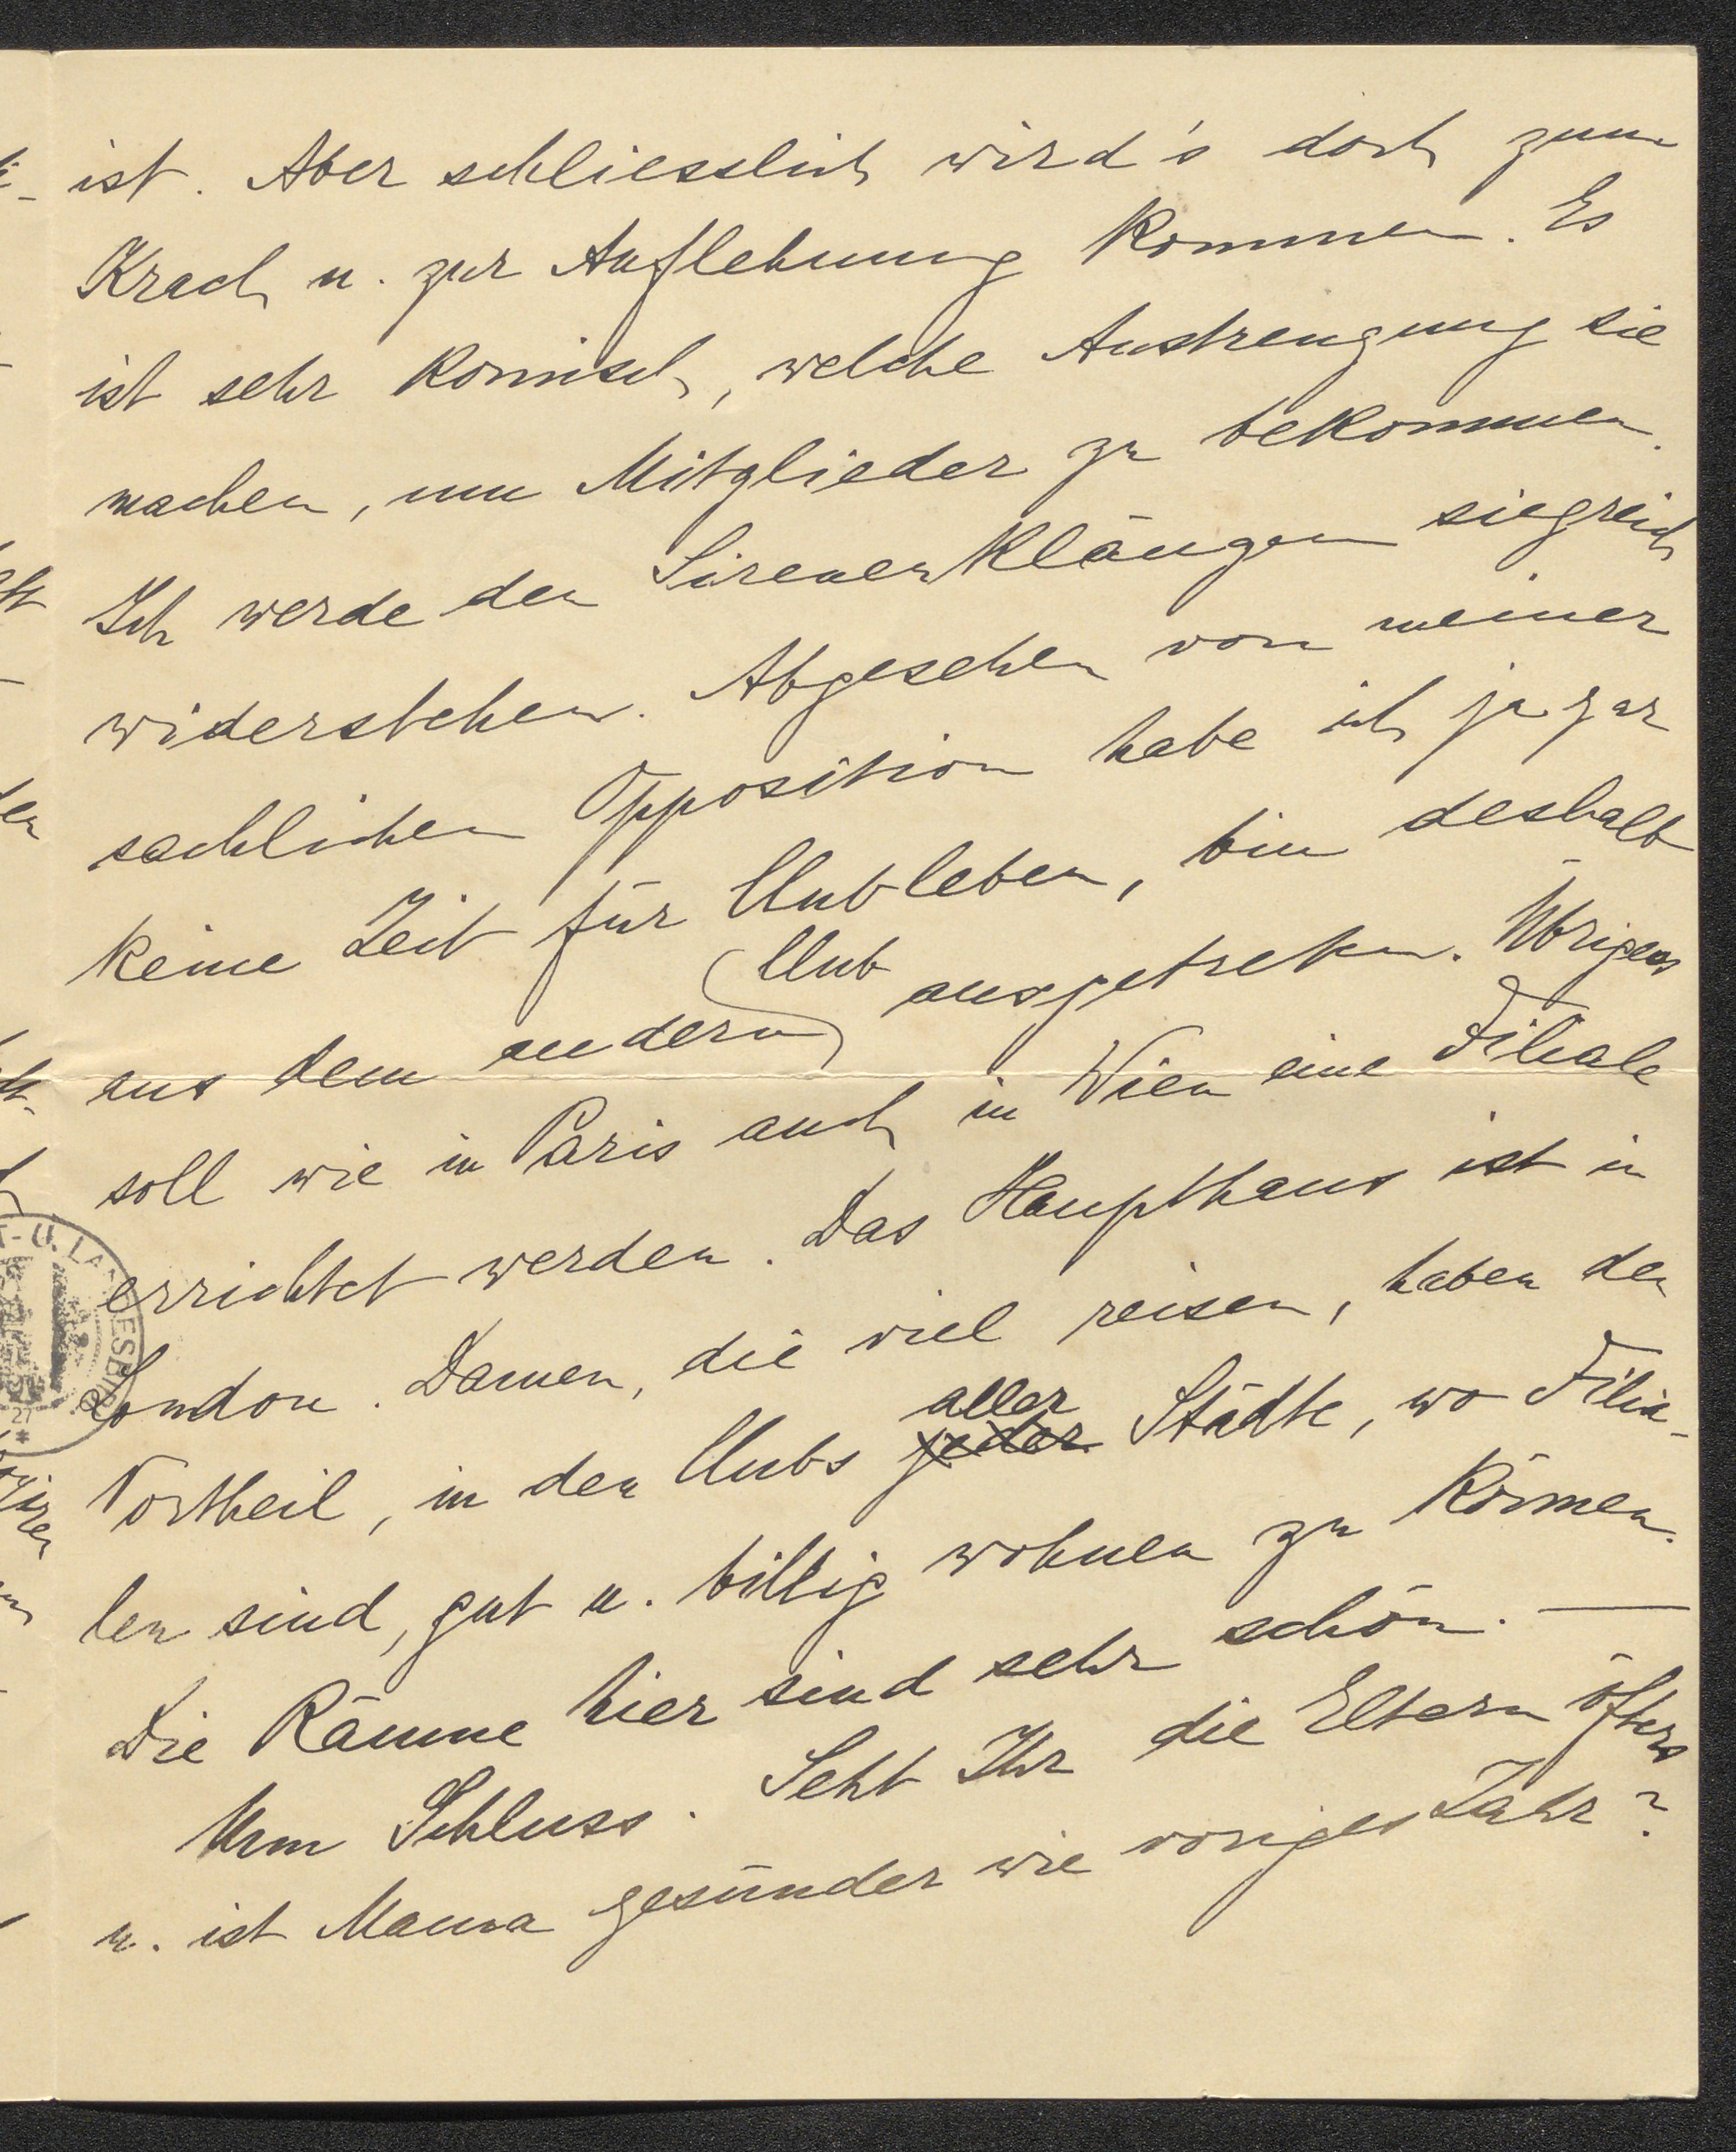 ist. Aber schliesslich wird's doch zum
Krach u. zur Auflehnung kommen. Es
ist sehr komisch, welche Anstrengung sie
machen, um Mitglieder zu bekommen.
Ich werde den Sirenenklängen siegreich
widerstehen. Abgesehen von meiner
sachlichen Opposition habe ich ja gar
keine Zeit für Clubleben, bin deshalb
aus dem andern Club ausgetreten. Übrigens
soll wie in Paris auch in Wien eine Filiale
errichtet werden. Das Haupthaus ist in
London. Damen, die viel reisen, haben den
Vortheil, in den Clubs jeder aller Städte, wo Filia-
len sind, gut u. billig wohnen zu können.
Die Räume hier sind sehr schön. —
Nun Schluss. Seht Ihr die Eltern öfters
u. ist Mama gesünder wie voriges Jahr?